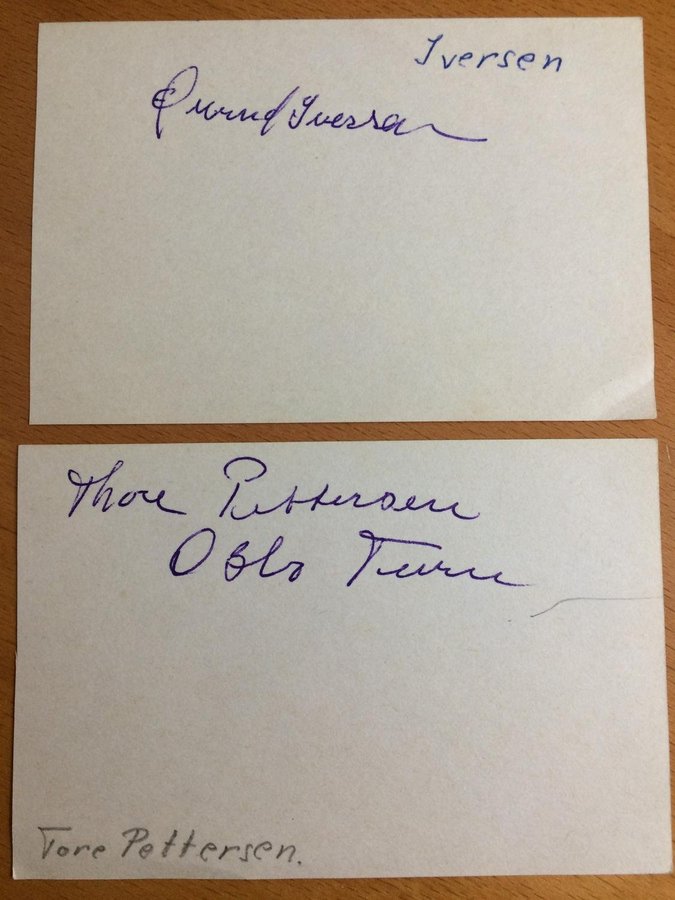 Iversen
Iversen
Thore Pettersen
Oslo Turn
Tore Pettersen.